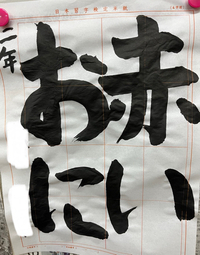 赤い
おに
二年